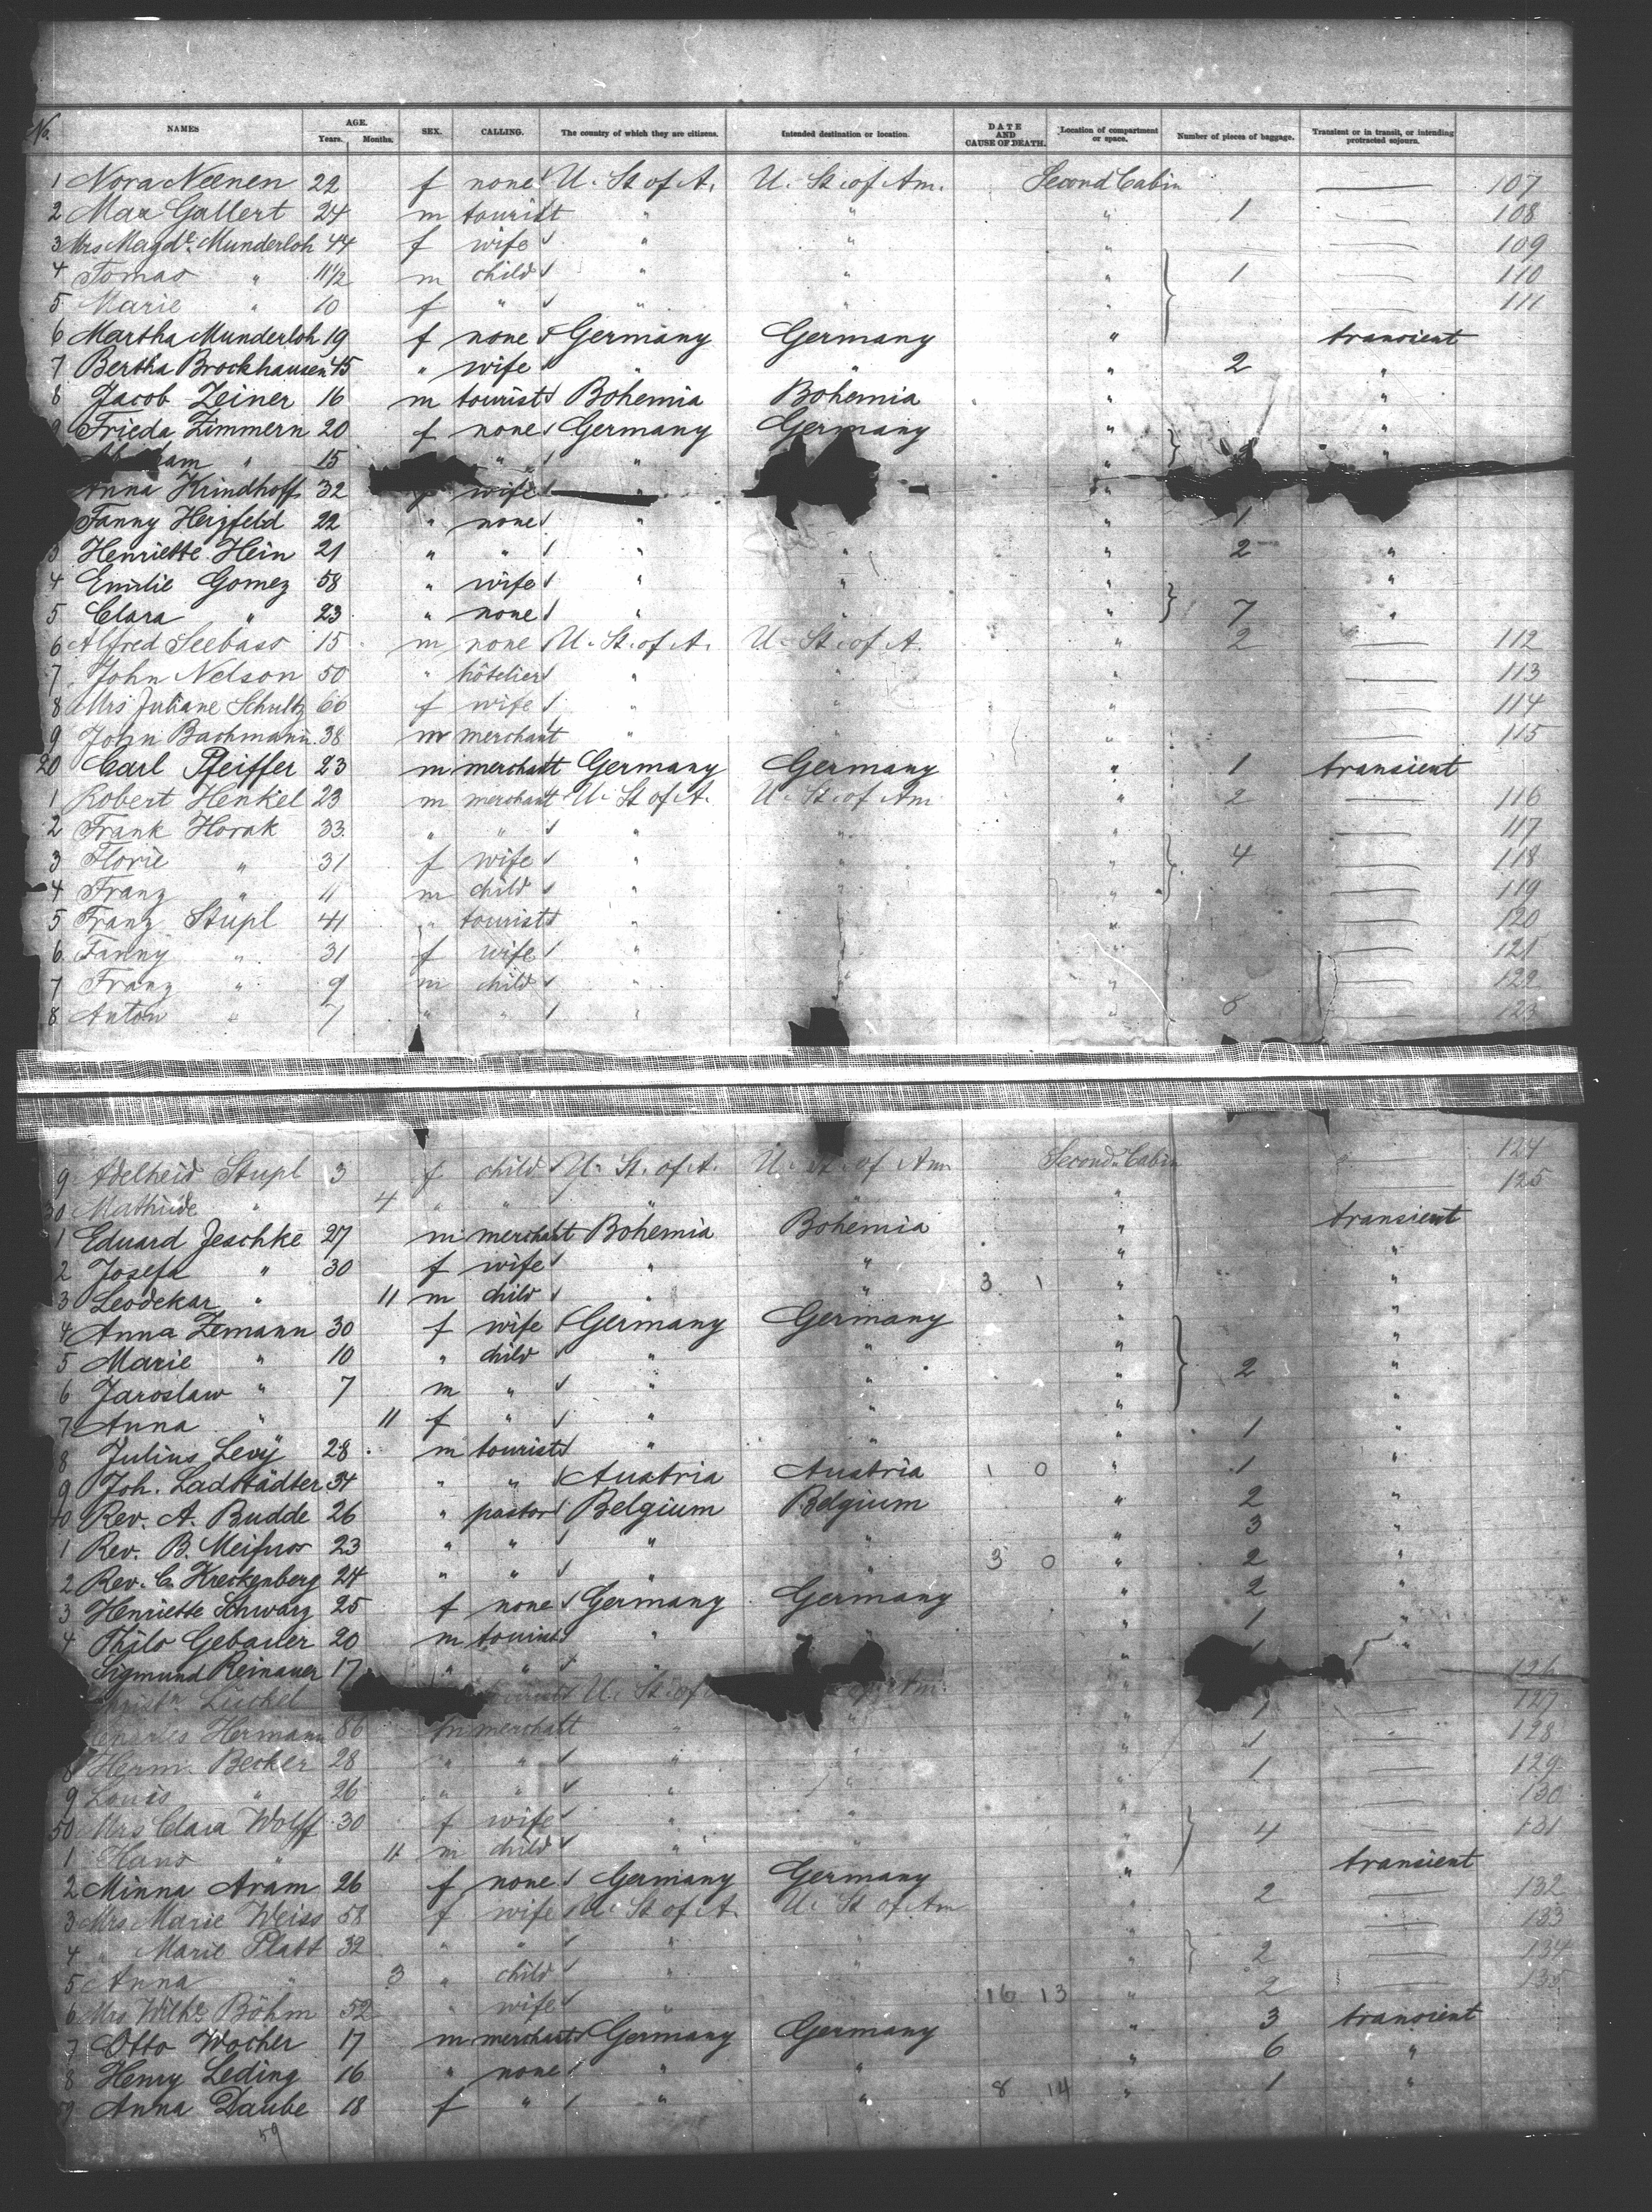 No. NAMES AGE. Years. Months. SEX. CALLING. The country of which they are citizens. Intended destination or location. DATE AND CAUSE OF DEATH. Location of compartment or space. Number of pieces of baggage. Transient or in transit, or intending protracted sojourn.
1 Nora Neenen 22 f none U. St. of A. U. St. of Am. Second Cabin — 107
2 Max Gallert 24 m tourist " " " 1 — 108
3 Mrs Magde. Munderloh 44 f wife " " " — 109
4 Tomas " 11 1/2 m child " " " 1 — 110
5 Marie " 10 f " " " " — 111
6 Martha Munderloh 19 f none Germany Germany " transient
7 Bertha Brockhausen 45 " wife " " " 2 "
8 Jacob Zeiner 16 m tourist Bohemia Bohemia " "
9 Frieda Zimmern 20 f none Germany Germany " "
am " 15 " " "
Anna Krindhoff 32 wife " "
Fanny Herzfeld 22 " none " " 1
3 Henriette Hein 21 " " " " " 2 "
4 Emilie Gomez 58 " wife " " " "
5 Clara " 23 " none " " " 7 "
6 Alfred Seebass 15 m none U. St. of A. U. St. of A. " 2 — 112
7 John Nelson 50 " hôtelier " " " — 113
8 Mrs Juliane Schultz 66 f wife " " " — 114
9 John Bachmann 38 m merchant " " " — 115
20 Carl Pfeiffer 23 m merchant Germany Germany " 1 transient
1 Robert Henkel 23 m merchant U. St. of A. U. St. of Am. " 2 — 116
2 Frank Horak 33 " " " " " — 117
3 Florie " 31 f wife " " " 4 — 118
4 Franz " 11 m child " " " — 119
5 Franz Stupl 41 " tourist " " " — 120
6 Fanny " 31 f wife " " " — 121
7 Franz " 9 m child " " " — 122
8 Anton " 7 " " " " 8 — 123
9 Adelheid Stupl 3 f child U. St. of A. U. St. of Am. Second Cabin — 124
30 Mathilde " 4 " " " " " — 125
1 Eduard Jeschke 27 m merchant Bohemia Bohemia " transient
2 Josefa " 30 f wife " " " "
3 Leodekar " 11 m child " " 3 1 " "
4 Anna Zemann 30 f wife Germany Germany " "
5 Marie " 10 " child " " " "
6 Jaroslaw " 7 m " " " " 2 "
7 Anna " 11 f " " " " "
8 Julius Levÿ 28 m tourist " " " 1 "
9 Joh. Ladstädter 34 " " Austria Austria 1 0 " 1 "
40 Rev. A. Budde 26 " pastor Belgium Belgium " 2 "
1 Rev. B. 23 " " " " " 3 "
2 Rev. C. Kreckenberg 24 " " " " 3 0 " 2 "
3 Henriette Schwarz 25 f none Germany Germany " 2 "
4 Thilo Gebauer 20 m tourist " " " 1 "
Sigmund Reinauer 17 " " " "
Lückel tourist U. St. of Am. " — 126
Charles Hermann 86 m merchant " " " 1 — 127
8 Herm. Becker 28 " " " " " 1 — 128
9 Louis " 26 " " " " " 1 — 129
50 Mrs Clara Wolff 30 f wife " " " — 130
1 Hans " 11 m child " " " 4 — 131
2 Minna Aram 26 f none Germany Germany " transient
3 Mrs Marie Weiss 58 f wife U. St. of A. U. St. of Am " 2 — 132
4 " Marie Platt 32 " " " " " — 133
5 Anna " 3 " child " " " 2 — 134
6 Mrs Wilhe. Böhm 52 " wife " " 16 13 " 2 — 135
7 Otto Wocher 17 m merchant Germany Germany " 3 transient
8 Henry Leding 16 " none " " " 6 "
9 Anna Daube 18 f " " " 8 14 " 1 "
59